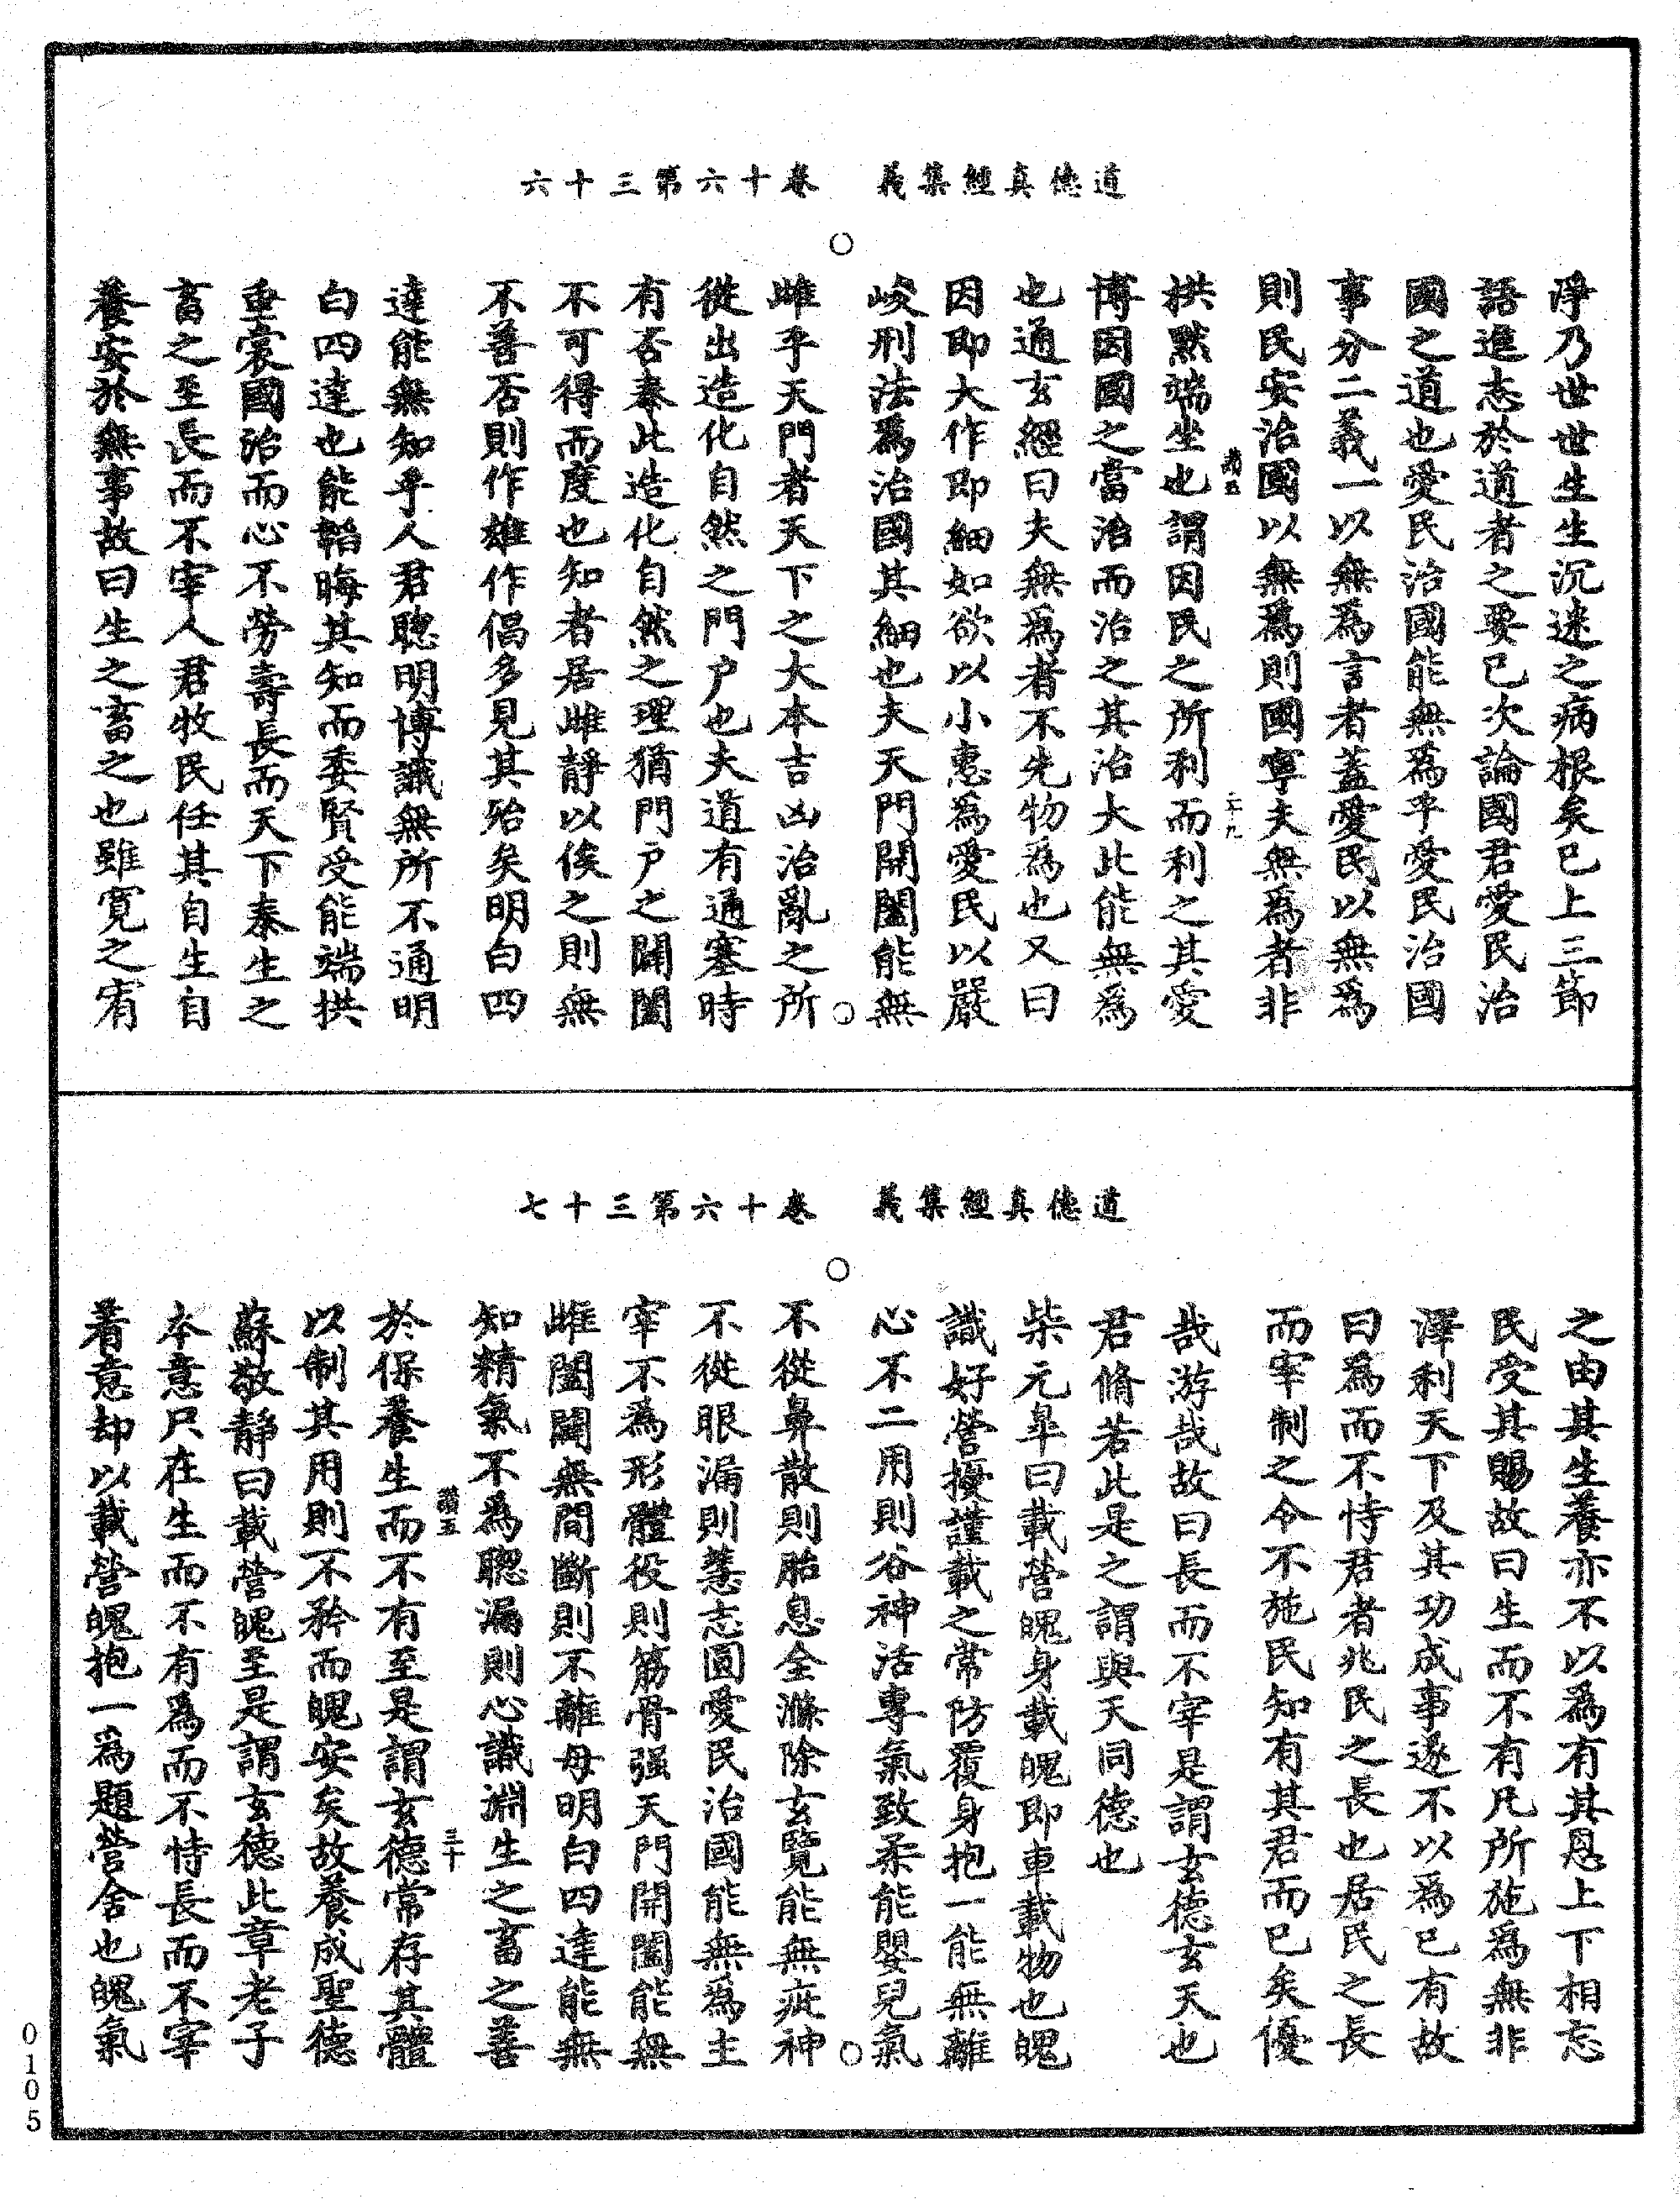 道德真經集義　卷十六第三十六
淨乃世世生生沉迷之病根矣已上三節
語進志於道者之要已次論國君愛民治
國之道也愛民治國能無為乎愛民治國
事分二義一以無為言者蓋愛民以無為
則民安治國以無為則國寧夫無為者非
拱默端坐也謂因民之所利而利之其愛
博因國之當治而治之其治大此能無為
也通玄經曰夫無為者不先物為也又曰
因即大作即細如欲以小惠為愛民以嚴
峻刑法為治國其細也夫天門開闔能無
雌乎天門者天下之大本吉凶治亂之所
從出造化自然之門户也夫道有通塞時
有否泰此造化自然之理猶門户之闢闔
不可得而度也知者居雌靜以俟之則無
不善否則作雄作倡多見其殆矣明白四
達能無知乎人君聰明博識無所不通明
白四達也能韜晦其知而委賢受能端拱
垂裳國治而心不勞壽長而天下泰生之
畜之至長而不宰人君牧民任其自生自
養安於無事故曰生之畜之也雖寬之宥
道德真經集義　卷十六第三十七
之由其生養亦不以為有其恩上下相忘
民受其賜故曰生而不有凡所施為無非
澤利天下及其功成事遂不以為已有故
曰為而不恃君者兆民之長也居民之長
而宰制之令不施民知有其君而已矣優
哉游哉故曰長而不宰是謂玄德玄天也
君脩若此是之謂與天同德也
柴元臯曰載營魄身載魄即車載物也魄
識好營擾謹載之常防覆身抱一能無離
心不二用則谷神活專氣致柔能嬰兒氣
不從鼻散則胎息全滌除玄覽能無疵神
不從眼漏則慧志圓愛民治國能無為主
宰不為形體役則筋骨强天門開闔能無
雌闔闢無間斷則不離母明白四達能無
知精氣不為聰漏則心識淵生之畜之善
於保養生而不有至是謂玄德常存其體
以制其用則不矜而魄安矣故養成聖德
蘇敬靜曰載營魄至是謂玄德此章老子
本意只在生而不有為而不恃長而不宰
着意却以載營魄抱一為題營舍也魄氣
0105